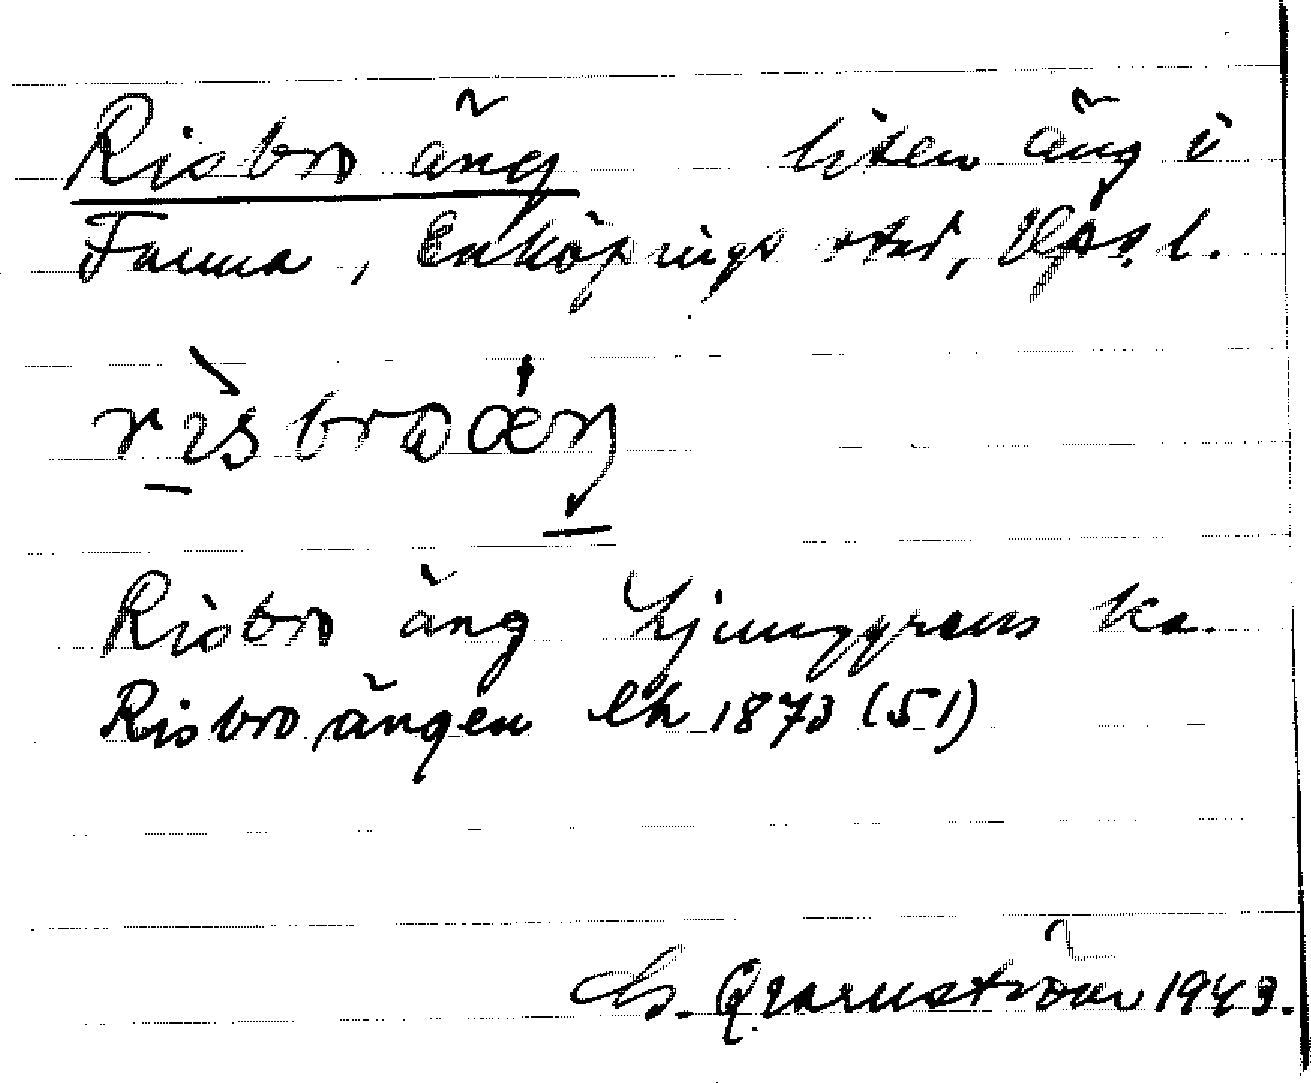 Risbro äng liten äng i
Fanna, Enköpings stad, Uppl.
rìsbroǽŋ
Risbro äng Ljunggrens ka.
Risbroängen Ek 1873 (51)
G. Qvarnström 1943.